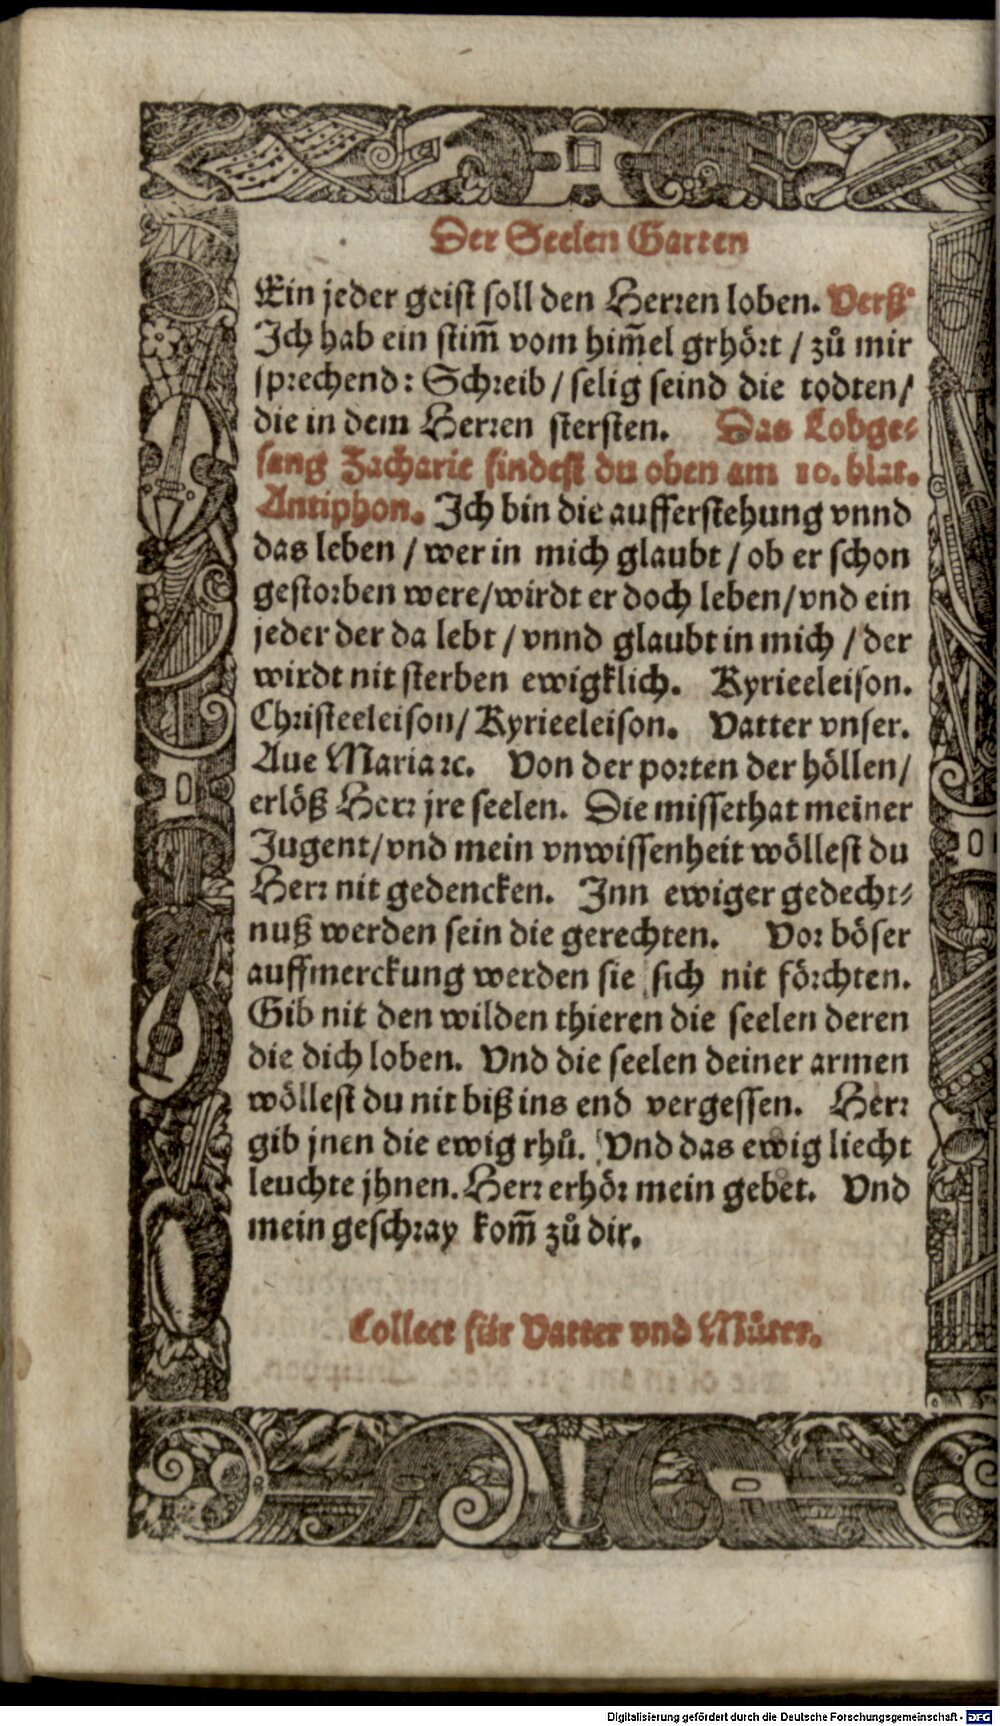 Der Seelen Garten
Ein jeder geist soll den Herren loben. Verß
Ich hab ein stim̃ vom him̃el grhört / zů mir
sprechend: Schreib / selig seind die todten/
die in dem Herren stersten. Das Lobge⸗
sang Zacharie findest du oben am 10. blat.
Antiphon. Ich bin die aufferstehung vnnd
das leben / wer in mich glaubt / ob er schon
gestorben were/wirdt er doch leben/vnd ein
jeder der da lebt / vnnd glaubt in mich / der
wirdt nit sterben ewigklich. Kyrieeleison.
Christeeleison/ Kyrieeleison. Vatter vnser.
Aue Maria ꝛc. Von der porten der höllen/
erlöß Herr jre seelen. Die missethat meiner
Jugent/vnd mein vnwissenheit wöllest du
Herr nit gedencken. Inn ewiger gedecht⸗
nuß werden sein die gerechten. Vor böser
auffmerckung werden sie sich nit förchten.
Gib nit den wilden thieren die seelen deren
die dich loben. Vnd die seelen deiner armen
wöllest du nit biß ins end vergessen. Herr
gib jnen die ewig rhů. Vnd das ewig liecht
leuchte jhnen. Herr erhör mein gebet. Vnd
mein geschray kom̃ zů dir.
Collect für Vatter vnd Můter.
Digitalisierung gefördert durch die Deutsche Forschungsgemeinschaft - DFG